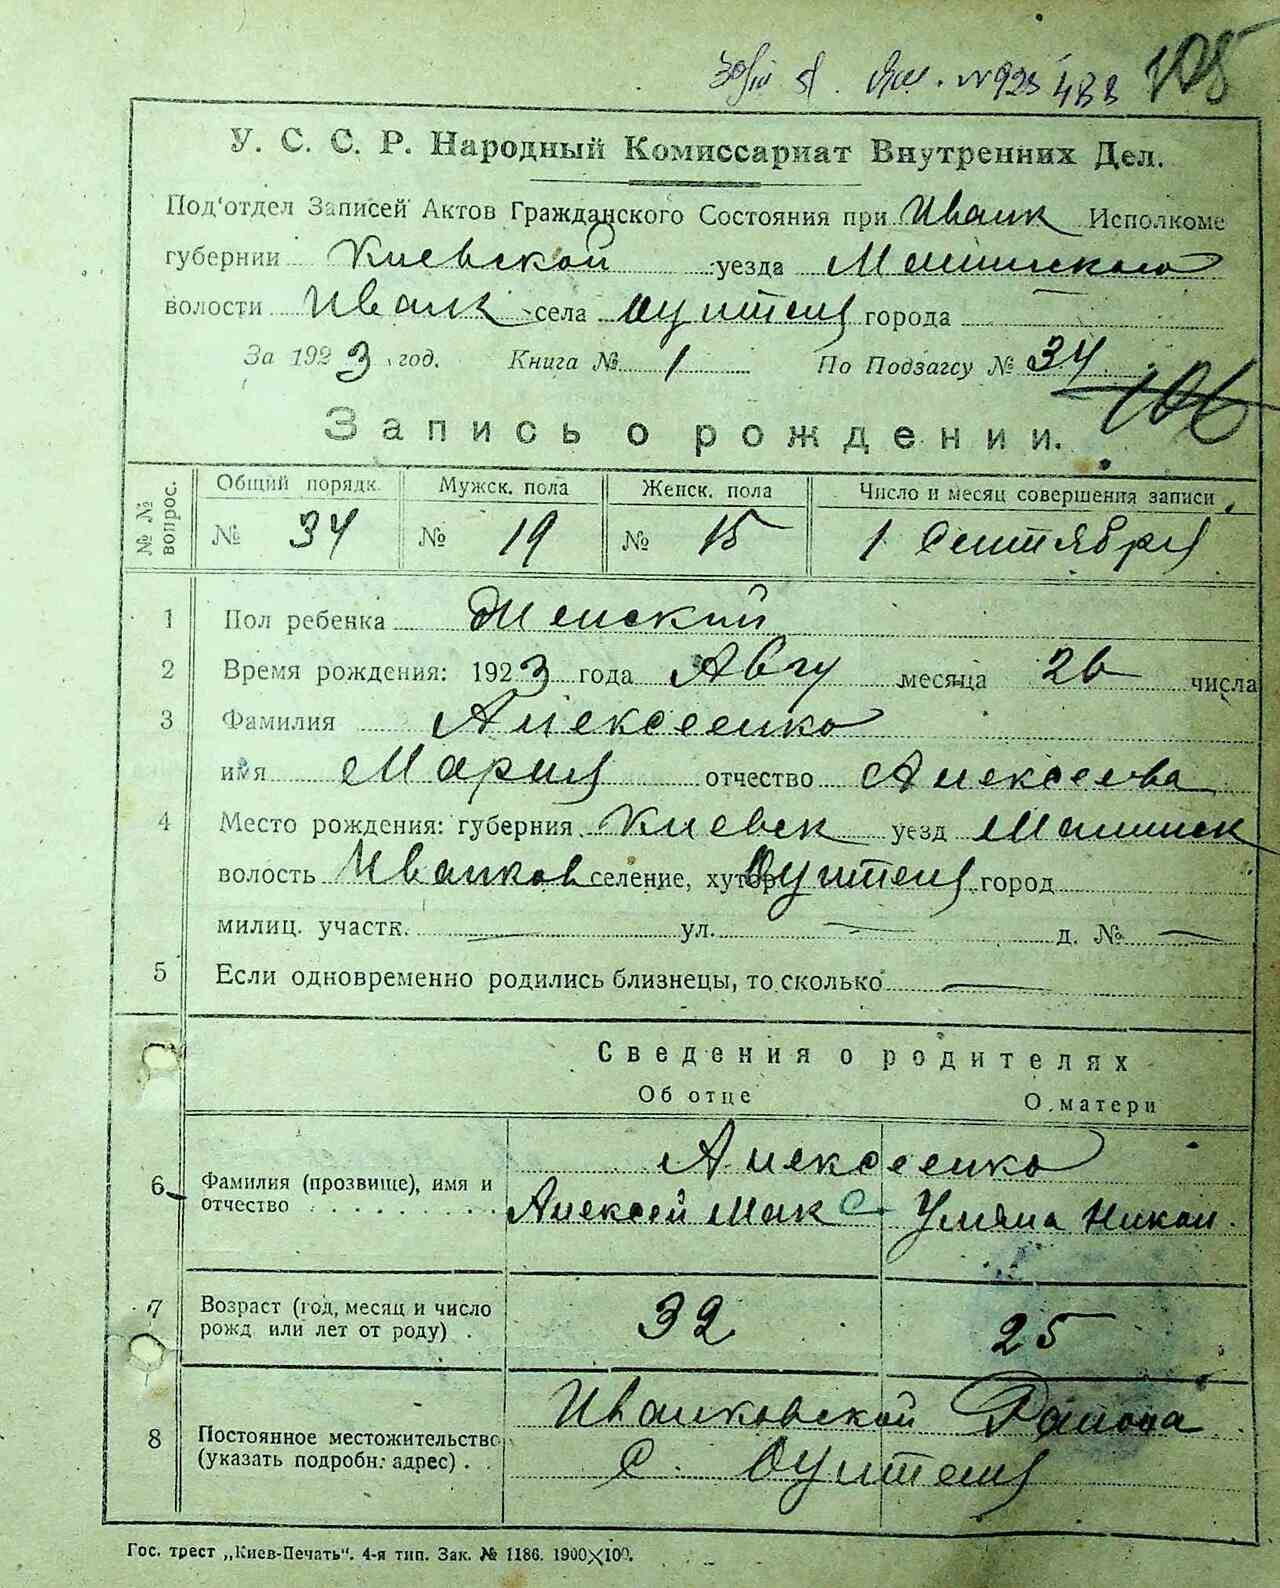 №928 488 105
У. С. С. Р. Народный Комиссариат Внутренних Дел.
Под'отдел Записей Актов Гражданского Состояния при Иванк Исполкоме
губернии Киевской уезда Малинского
волости Иванк села города
За 1923 год. Книга № 1 По Подзагсу № 34
106
Запись о рождении.
№№ вопрос. Общий порядк. Мужск. пола Женск. пола Число и месяц совершения записи
№ 34 № 19 № 15 1 Сентября
1 Пол ребенка Женский
2 Время рождения: 1923 года Авгу месяца 26 числа
3 Фамилия Алексеенко
имя Мария отчество Алексеева
4 Место рождения: губерния Киевск уезд Малинск
волость Иванков селение, хутор город
милиц. участк. — ул. — д. № —
5 Если одновременно родились близнецы, то сколько —
Сведения о родителях
Об отце О матери
Алексеенко
6 Фамилия (прозвище), имя и отчество Алексей Мак С. Уляна Никол.
7 Возраст (год, месяц и число рожд или лет от роду) 32 25
8 Постоянное местожительство (указать подробн. адрес) Иванковской Района
с.
Гос. трест „Киев-Печать“. 4-я тип. Зак. № 1186. 1900×100.